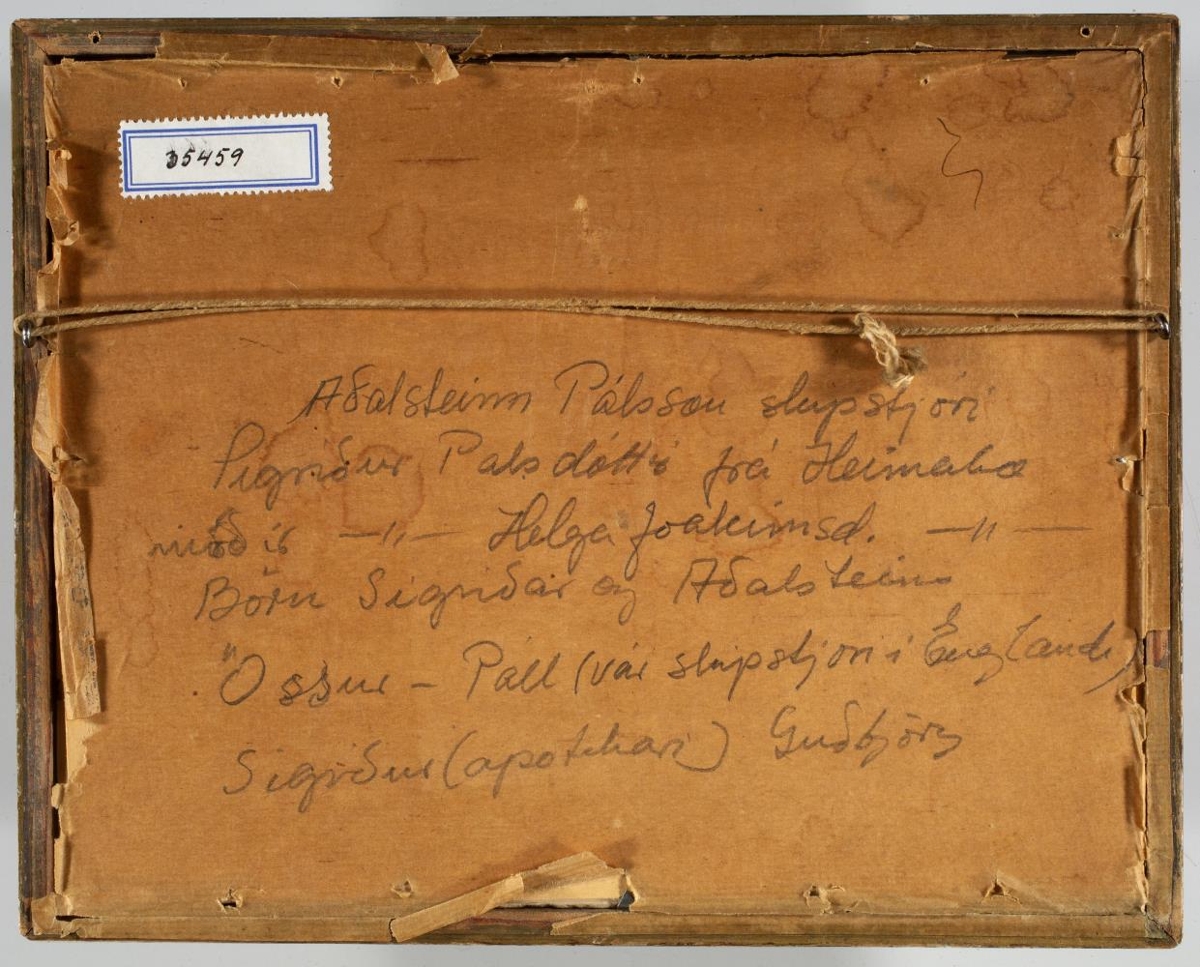 35459
Aðalsteinn Pálsson skipstjóri
Sigríður Palsdóttir frá Heimabæ
móðir —„— Helga Joakimsd. —„—
Börn Sigríðar og Aðalsteins
Össur – Páll (var skipstjóri i Englandi)
Sigríður (apotekari) Guðbjörg